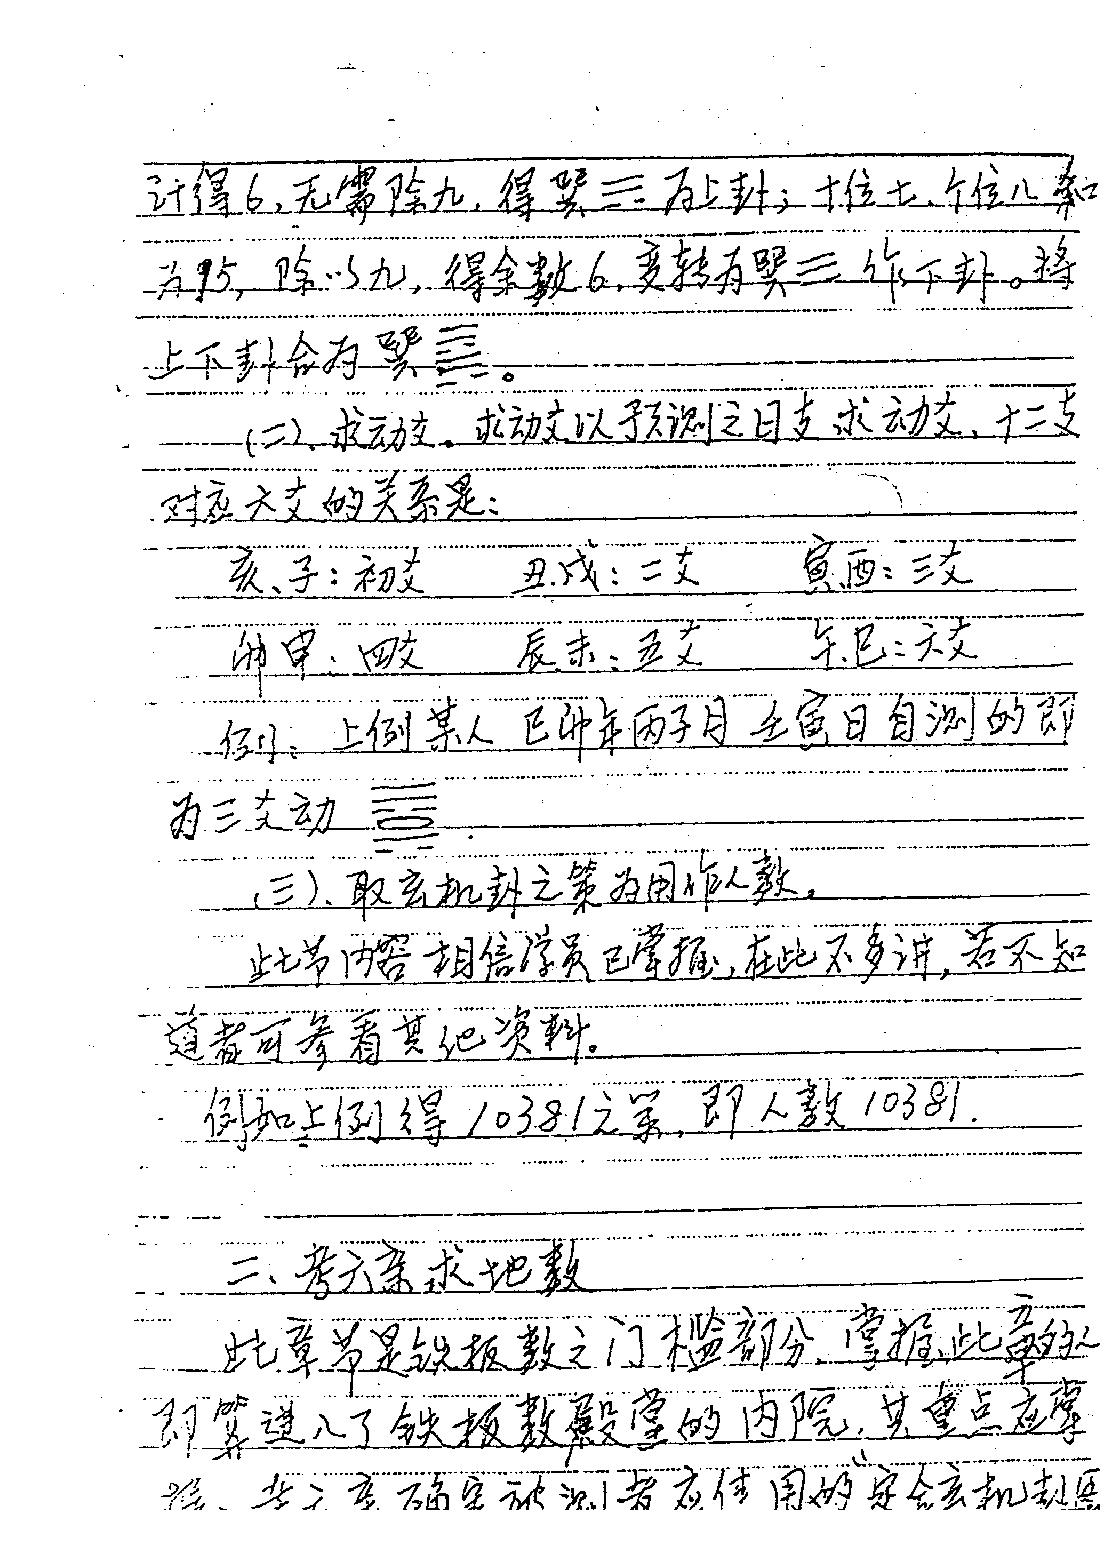 计得6,无需除九,得巽☴为上卦;十位七、个位八和
为15,除以九,得余数6,变转为巽☴作下卦。将
上下卦合为巽䷸。
(二)、求动爻。求动爻以予测之日支求动爻、十二支
对应六爻的关系是:
亥、子:初爻 丑.戌:二爻 寅酉:三爻
卯申:四爻 辰未:五爻 午.巳:六爻
例:上例某人 已卯年丙子月壬寅日自测的即
为三爻动
(三)、取玄机卦之策为用作人数。
此节内容相信学员已掌握,在此不多讲,若不知
道者可参看其他资料。
例如上例得10381之策,即人数10381.
二、考六亲求地数
此章节是铁板数之门槛部分.掌握此章的人
即算进入了铁板数殿堂的内院,其重点应掌
考六亲确定被测者应使用的"定会玄机卦